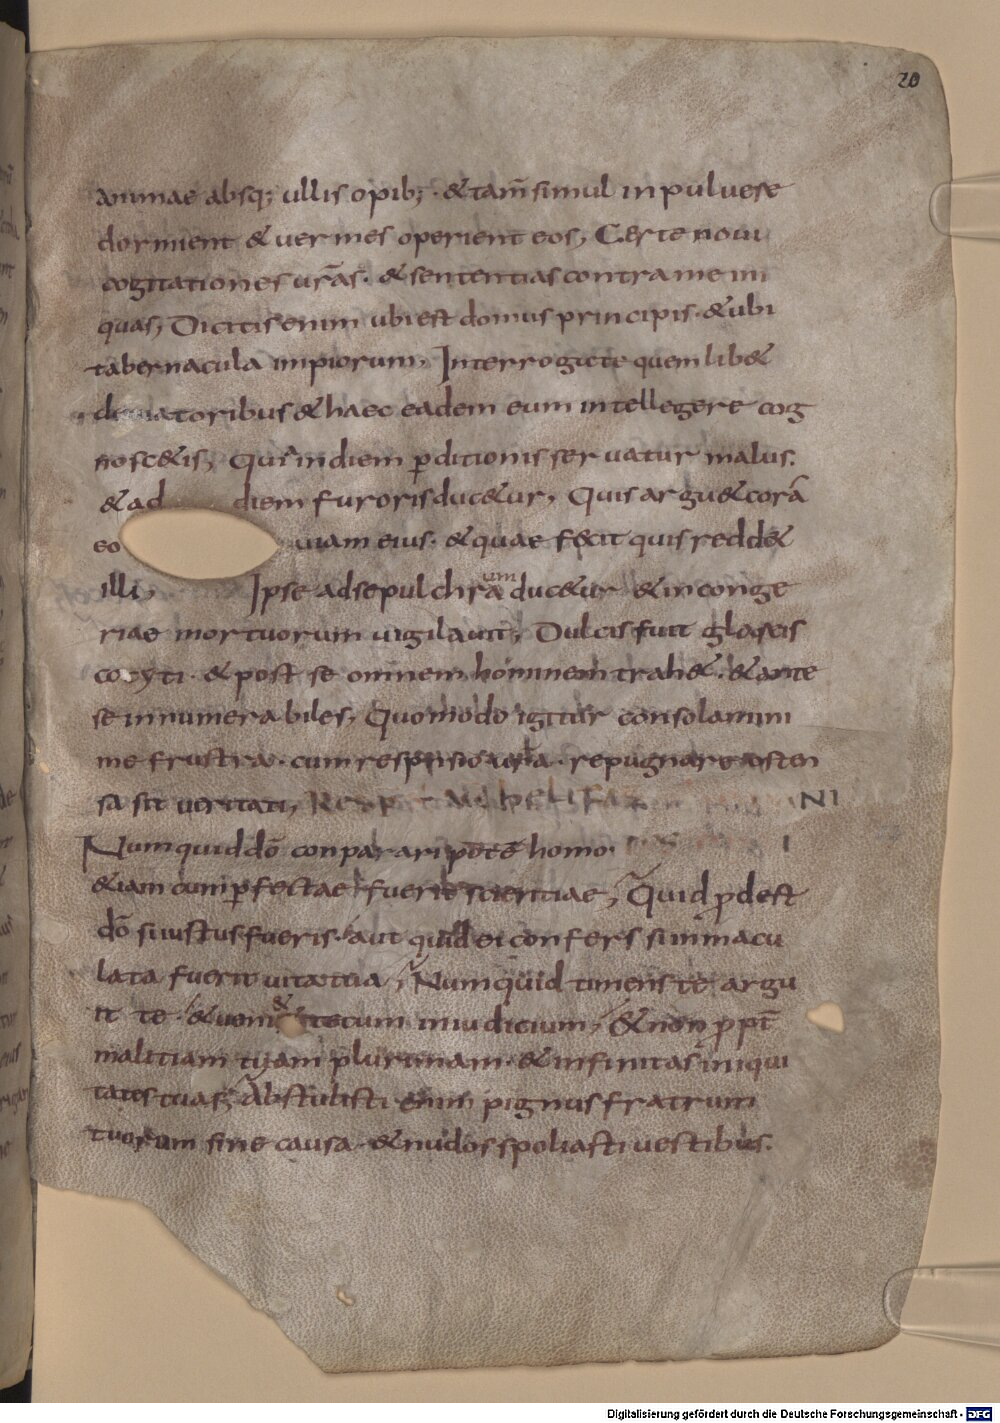 20
animae absq; ullis opib; · & tam̄ simul in puluere
dormient & uermes operient eos, Certe noui
cogitationes ur̄as · & sententias contra me ini
quas, Dicitis enim ubi est domus principis · & ubi
tabernacula impiorum, Interrogate quemlib&
de uiatoribus & haec eadem eum intellegere cog
nosc&is, Quia in diem p̱ditionis seruatur malus.
& ad diem furoris duc&ur, Quis argu& corā
eo uiam eius · & quae fecit quis redd&
illi, Ipse ad sepulchra um duc&ur & in conge
riae mortuorum uigilauit, Dulcis fuit glareis
cocyti · & post se omnem hominem trah& · & ante
se innumerabiles, Quomodo igitur consolamini
me frustra · cum responsio uestra · repugnare osten
sa sit ueritati, NI
Numquid dō conparari potē homo ·
&iam cum p̱fectae fuerit scientiae, Quid p̱dest
dō si iustus fueris · aut quid ei confers si inmacu
lata fuerit uita tua, Numquid timens te argu
it te · & ueni & tecum in iudicium, & non p̱pt̄
malitiam tuam plurimam · & infinitas iniqui
tates tuas, Abstulisti enim pignus fratrum
tuorum sine causa · & nudos spoliasti uestibus.
Digitalisierung gefördert durch die Deutsche Forschungsgemeinschaft - DFG